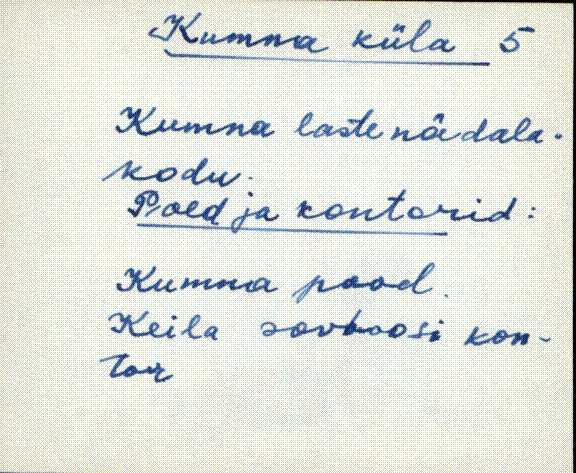 Kumna küla 5
Kumna laste nädala-
kodu.
Poed ja kontorid:
Kumna pood.
Keila sovhoosi kon-
tor